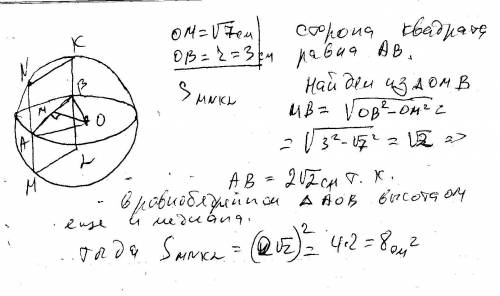 K
N
B
M
O
A
L
M
OM = √7 см
OB = r = 3 см
S MNKL
сторона квадрата
равна AB.
Найдем из ΔOMB
MB = √OB² - OM² =
= √3² - √7² = √2 =>
AB = 2√2 см т. к.
в равнобедренном ΔAOB высота OM
еще и медиана.
тогда S MNKL = (2√2)² = 4·2 = 8 см²